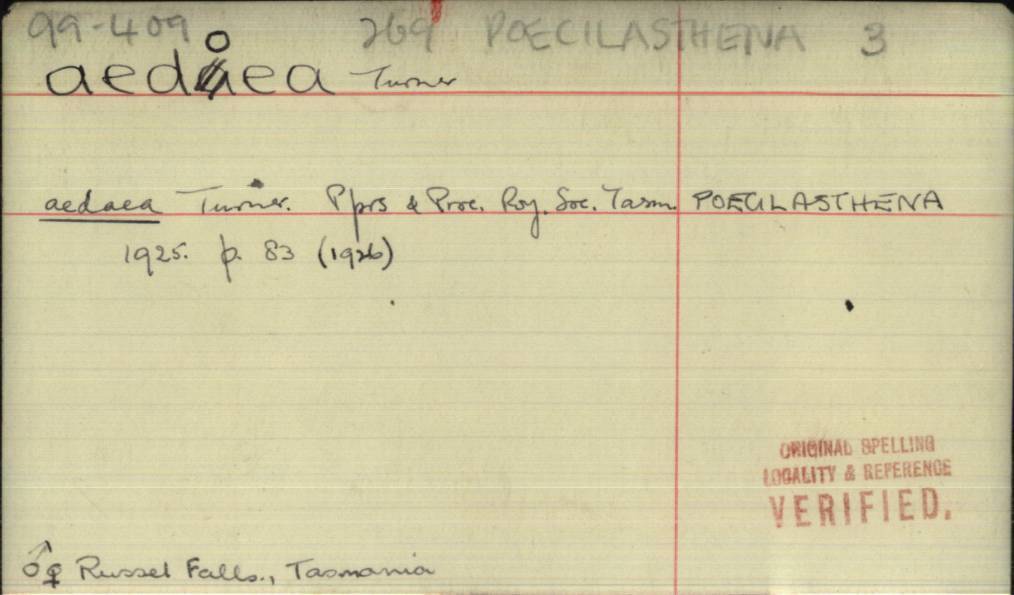 99-409 269 POECILASTHENA 3
aedoea Turner
aedaea Turner. Pprs & Proc. Roy. Soc. Tasm. POECILASTHENA
1925. p. 83 (1926)
ORIGINAL SPELLING
LOCALITY & REFERENCE
VERIFIED.
♂♀ Russel Falls., Tasmania